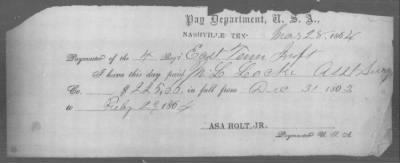 Pay Department, U. S. A.,
NASHVILLE TEN. Mar 28, 1864
Paymaster of the 4 Reg't East Tenn Inft
I have this day paid M. L. Locke Asst Surg
Co. $225,56 in full from Dec 31 1863
to Feby 29, 1864
ASA HOLT, JR.
Paymaster U. S. A.